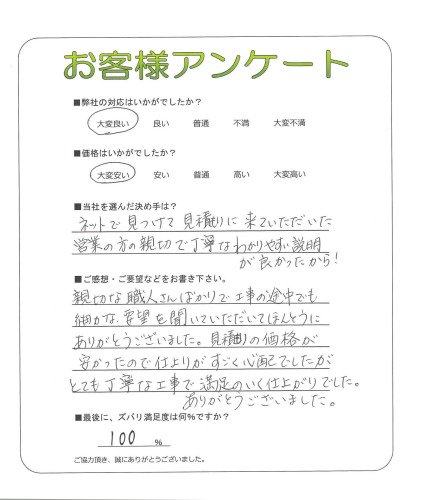 お客様アンケート
■弊社の対応はいかがでしたか？
大変良い 良い 普通 不満 大変不満
■価格はいかがでしたか？
大変安い 安い 普通 高い 大変高い
■当社を選んだ決め手は？
ネットで見つけて見積りに来ていただいた
営業の方の親切で丁寧なわかりやすい説明
が良かったから！
■ご感想・ご要望などをお書き下さい。
親切な職人さんばかりで工事の途中でも
細かな要望を聞いていただいてほんとうに
ありがとうございました。見積りの価格が
安かったので仕上りがすごく心配でしたが
とても丁寧な工事で満足のいく仕上がりでした。
ありがとうございました。
■最後に、ズバリ満足度は何％ですか？
100 %
ご協力頂き、誠にありがとうございました。